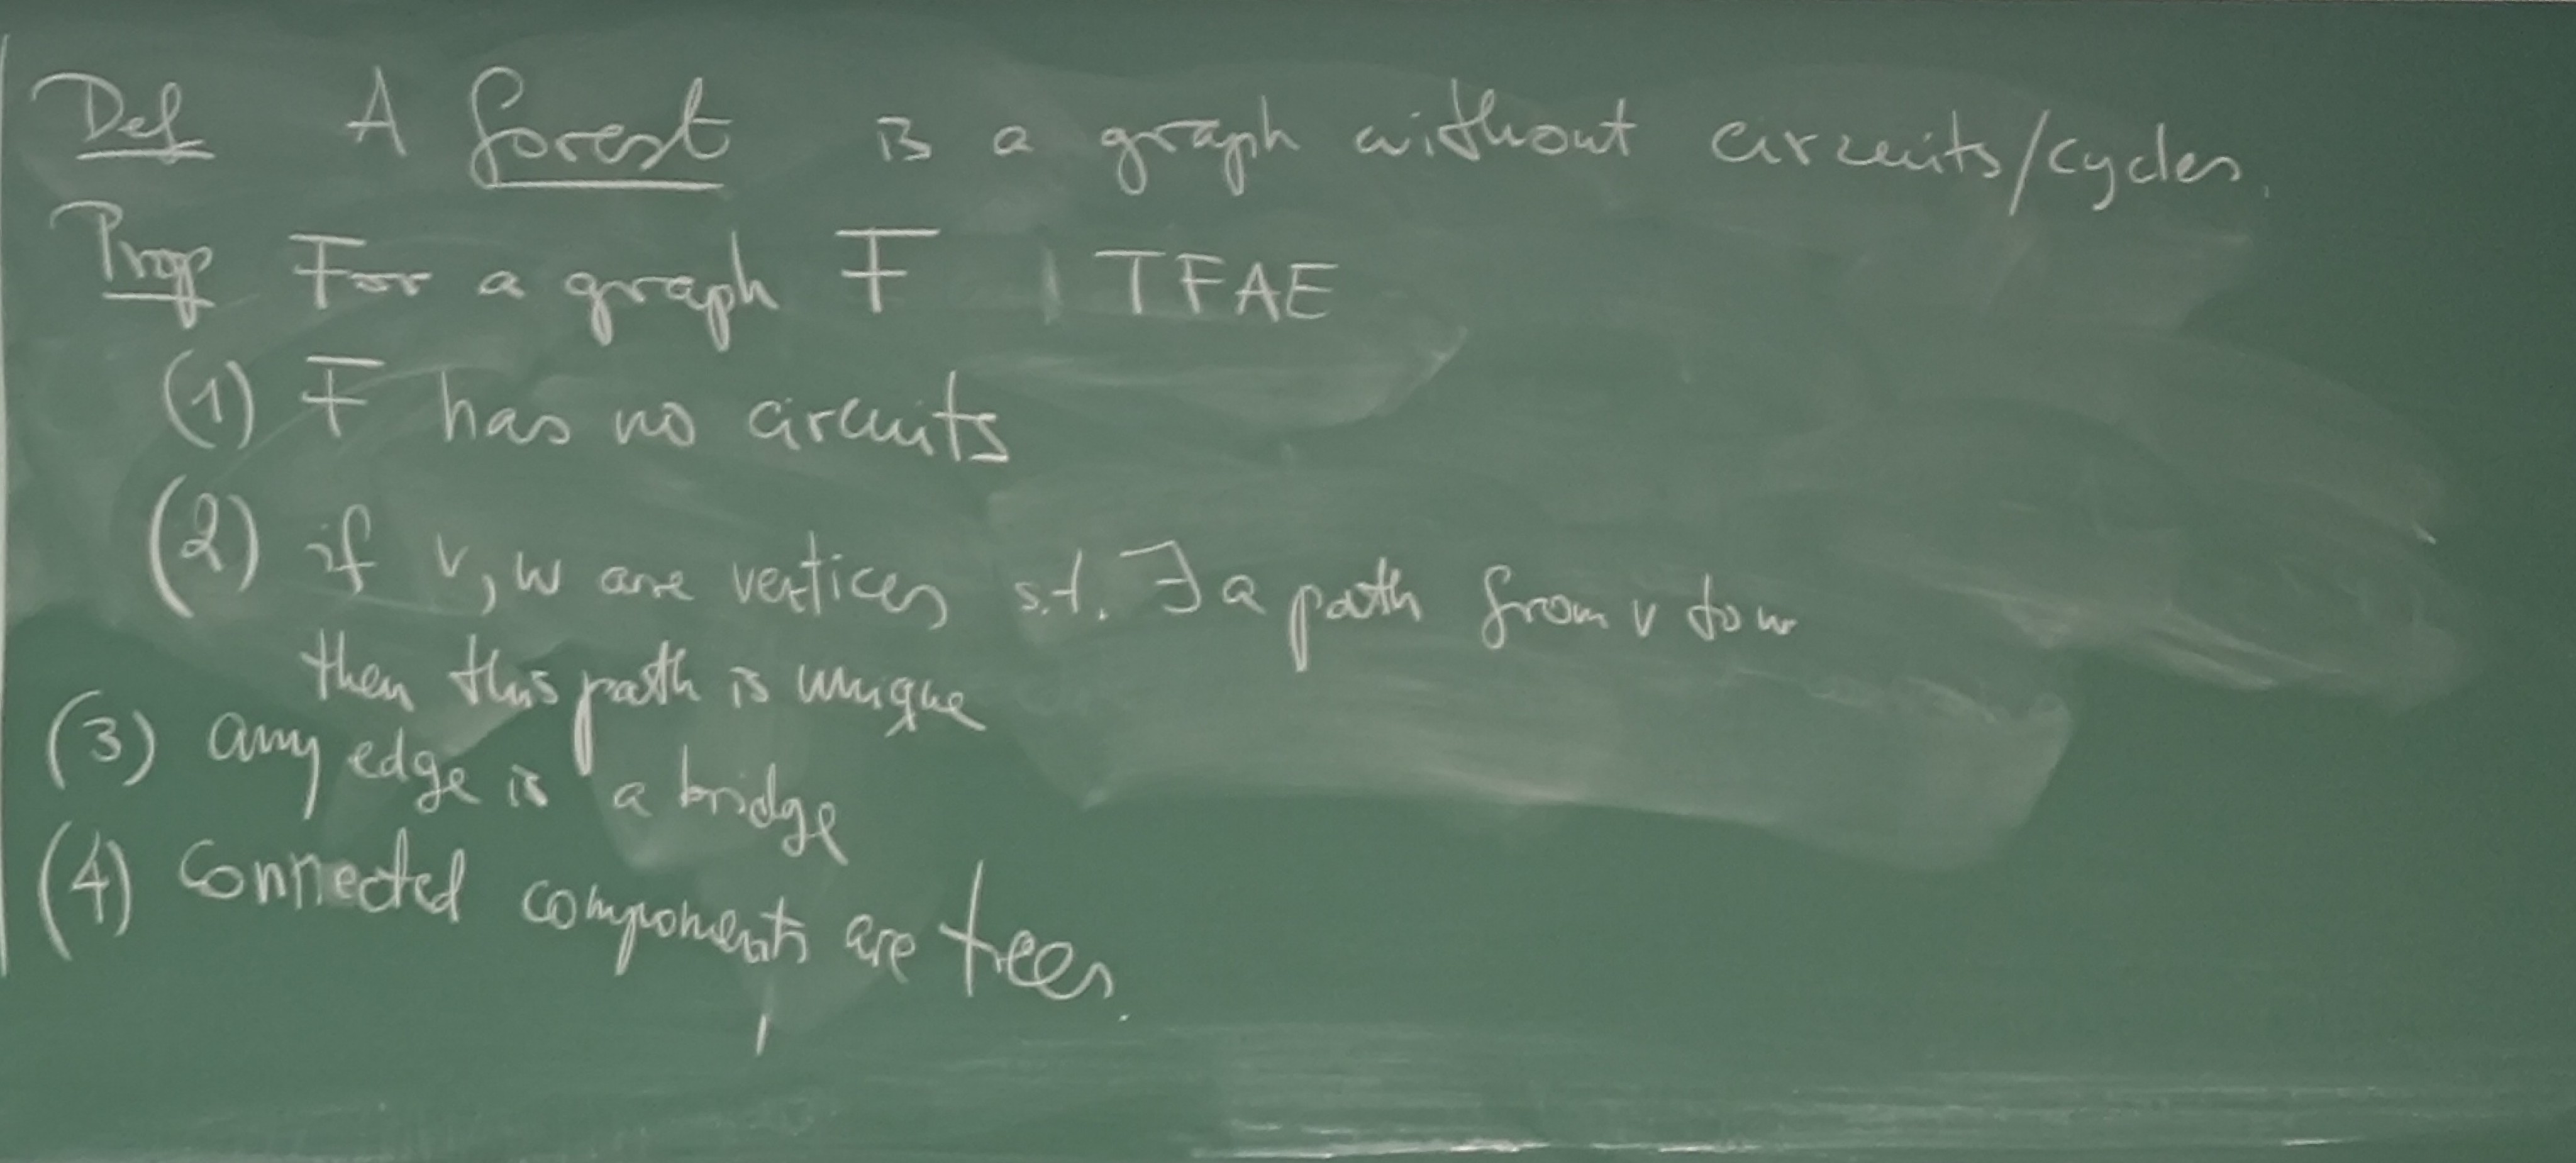 Def A forest is a graph without circuits/cycles.
Prop For a graph F, TFAE
(1) F has no circuits
(2) if v, w are vertices s.t. ∃ a path from v to w
then this path is unique
(3) any edge is a bridge
(4) connected components are trees.